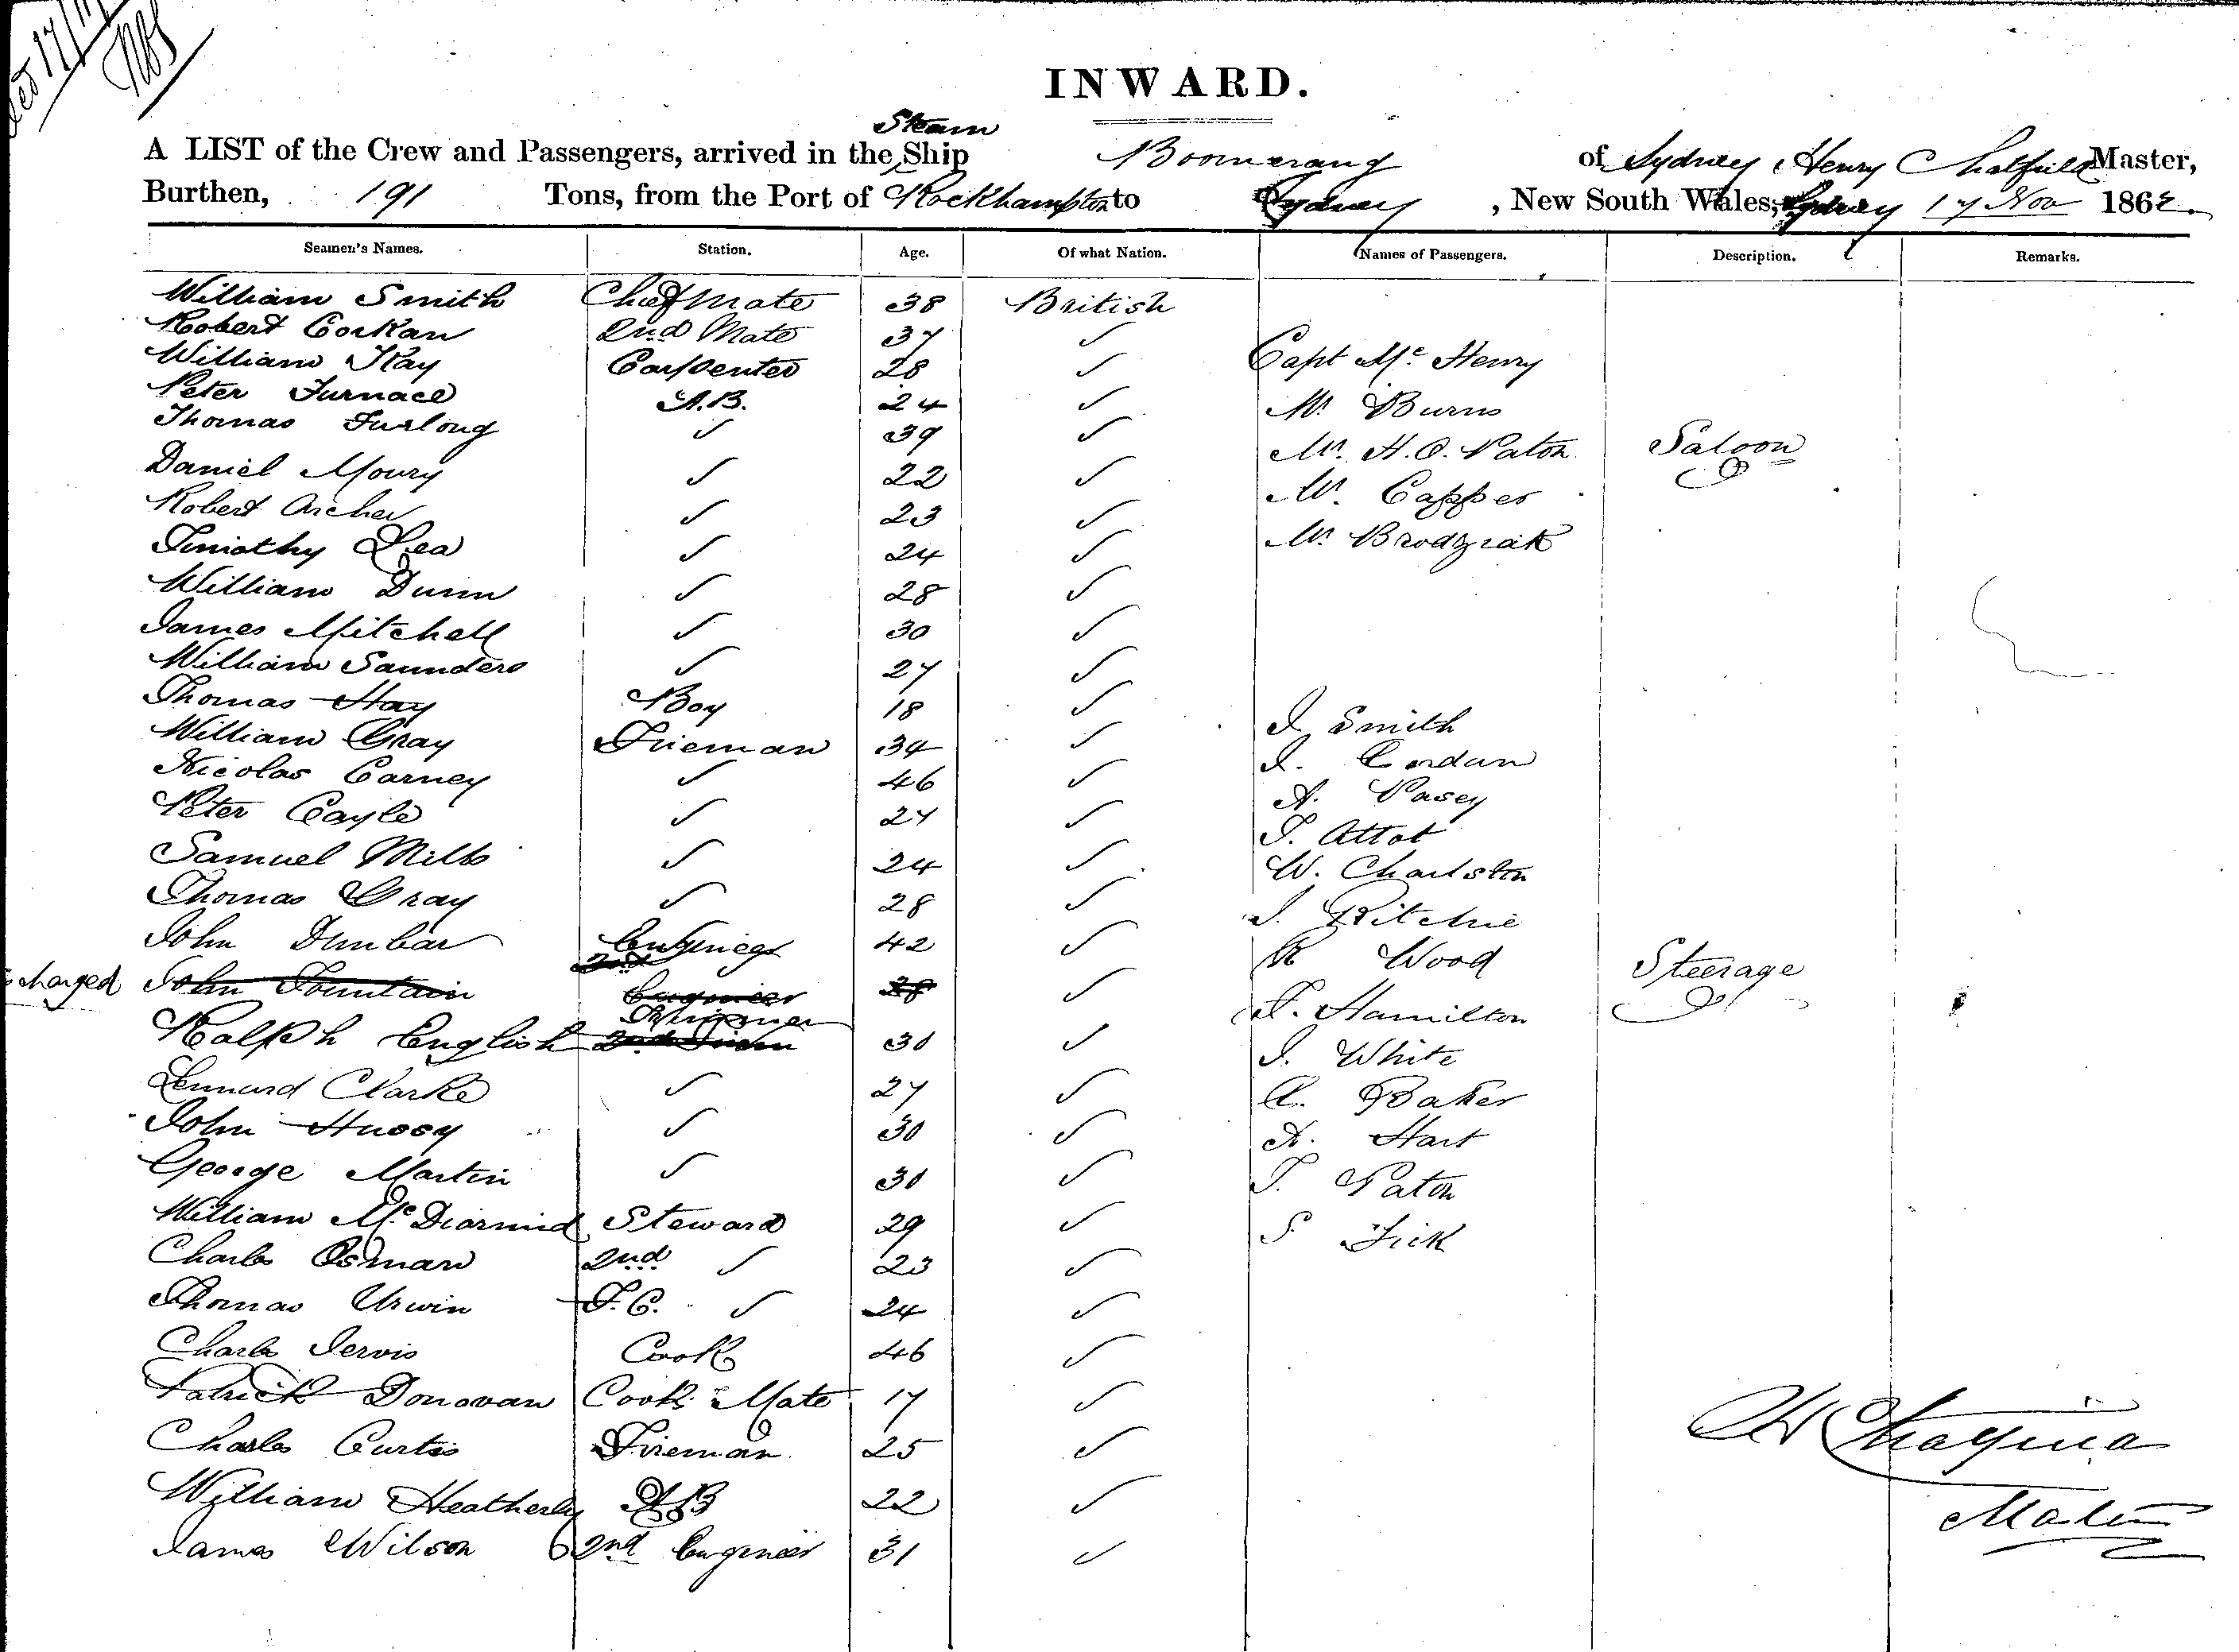 INWARD.
Steam
A LIST of the Crew and Passengers, arrived in the Ship Boomerang of Sydney Henry Chatfield Master,
Burthen, 191 Tons, from the Port of Rockhampton to Sydney, New South Wales, Sydney 17 Nov 1862.
Seamen's Names. Station. Age. Of what Nation. Names of Passengers. Description. Remarks.
William Smith Chief Mate 38 British
Robert Corkan 2nd Mate 37 ✓
William Kay Carpenter 28 ✓ Capt Mc Henry
Peter Furnace A.B. 24 ✓ Mr Burns
Thomas Furlong ✓ 39 ✓ Mr. H. O. Paton Saloon
Daniel Moury ✓ 22 ✓ Mr. Capper
Robert Archer ✓ 23 ✓ Mr. Brodziak
Timothy Lea ✓ 24 ✓
William Dunn ✓ 28 ✓
James Mitchell ✓ 30 ✓
William Saunders ✓ 27 ✓
Thomas Hay Boy 18 ✓ J. Smith
William Gray Fireman 34 ✓ J. Cordan
Nicolas Carney ✓ 46 ✓ A. Pasey
Peter Cayle ✓ 27 ✓ T. Attot
Samuel Mills ✓ 24 ✓ W. Charlston
Thomas Gray ✓ 28 ✓ J. Ritchie
John Dunbar Engineer 42 ✓ R Wood Steerage
charged John Fountain 2nd Engineer 28 ✓ T. Hamilton
Ralph English Trimmer 30 ✓ J. White
Lennard Clarke ✓ 27 ✓ A. Baker
John Hussy ✓ 30 ✓ A. Hart
George Martin ✓ 30 ✓ T. Paton
William Mc Diarmid Steward 29 ✓ S Fick
Charles Osman 2nd ✓ 23 ✓
Thomas Urwin F.C. ✓ 24 ✓
Charles Jervis Cook 46 ✓
Patrick Donovan Cooks Mate 17 ✓
Charles Curtis Fireman 25 ✓
William Heatherly AB 22 ✓
James Wilson 2nd Engineer 31 ✓
H Chatfield
Master